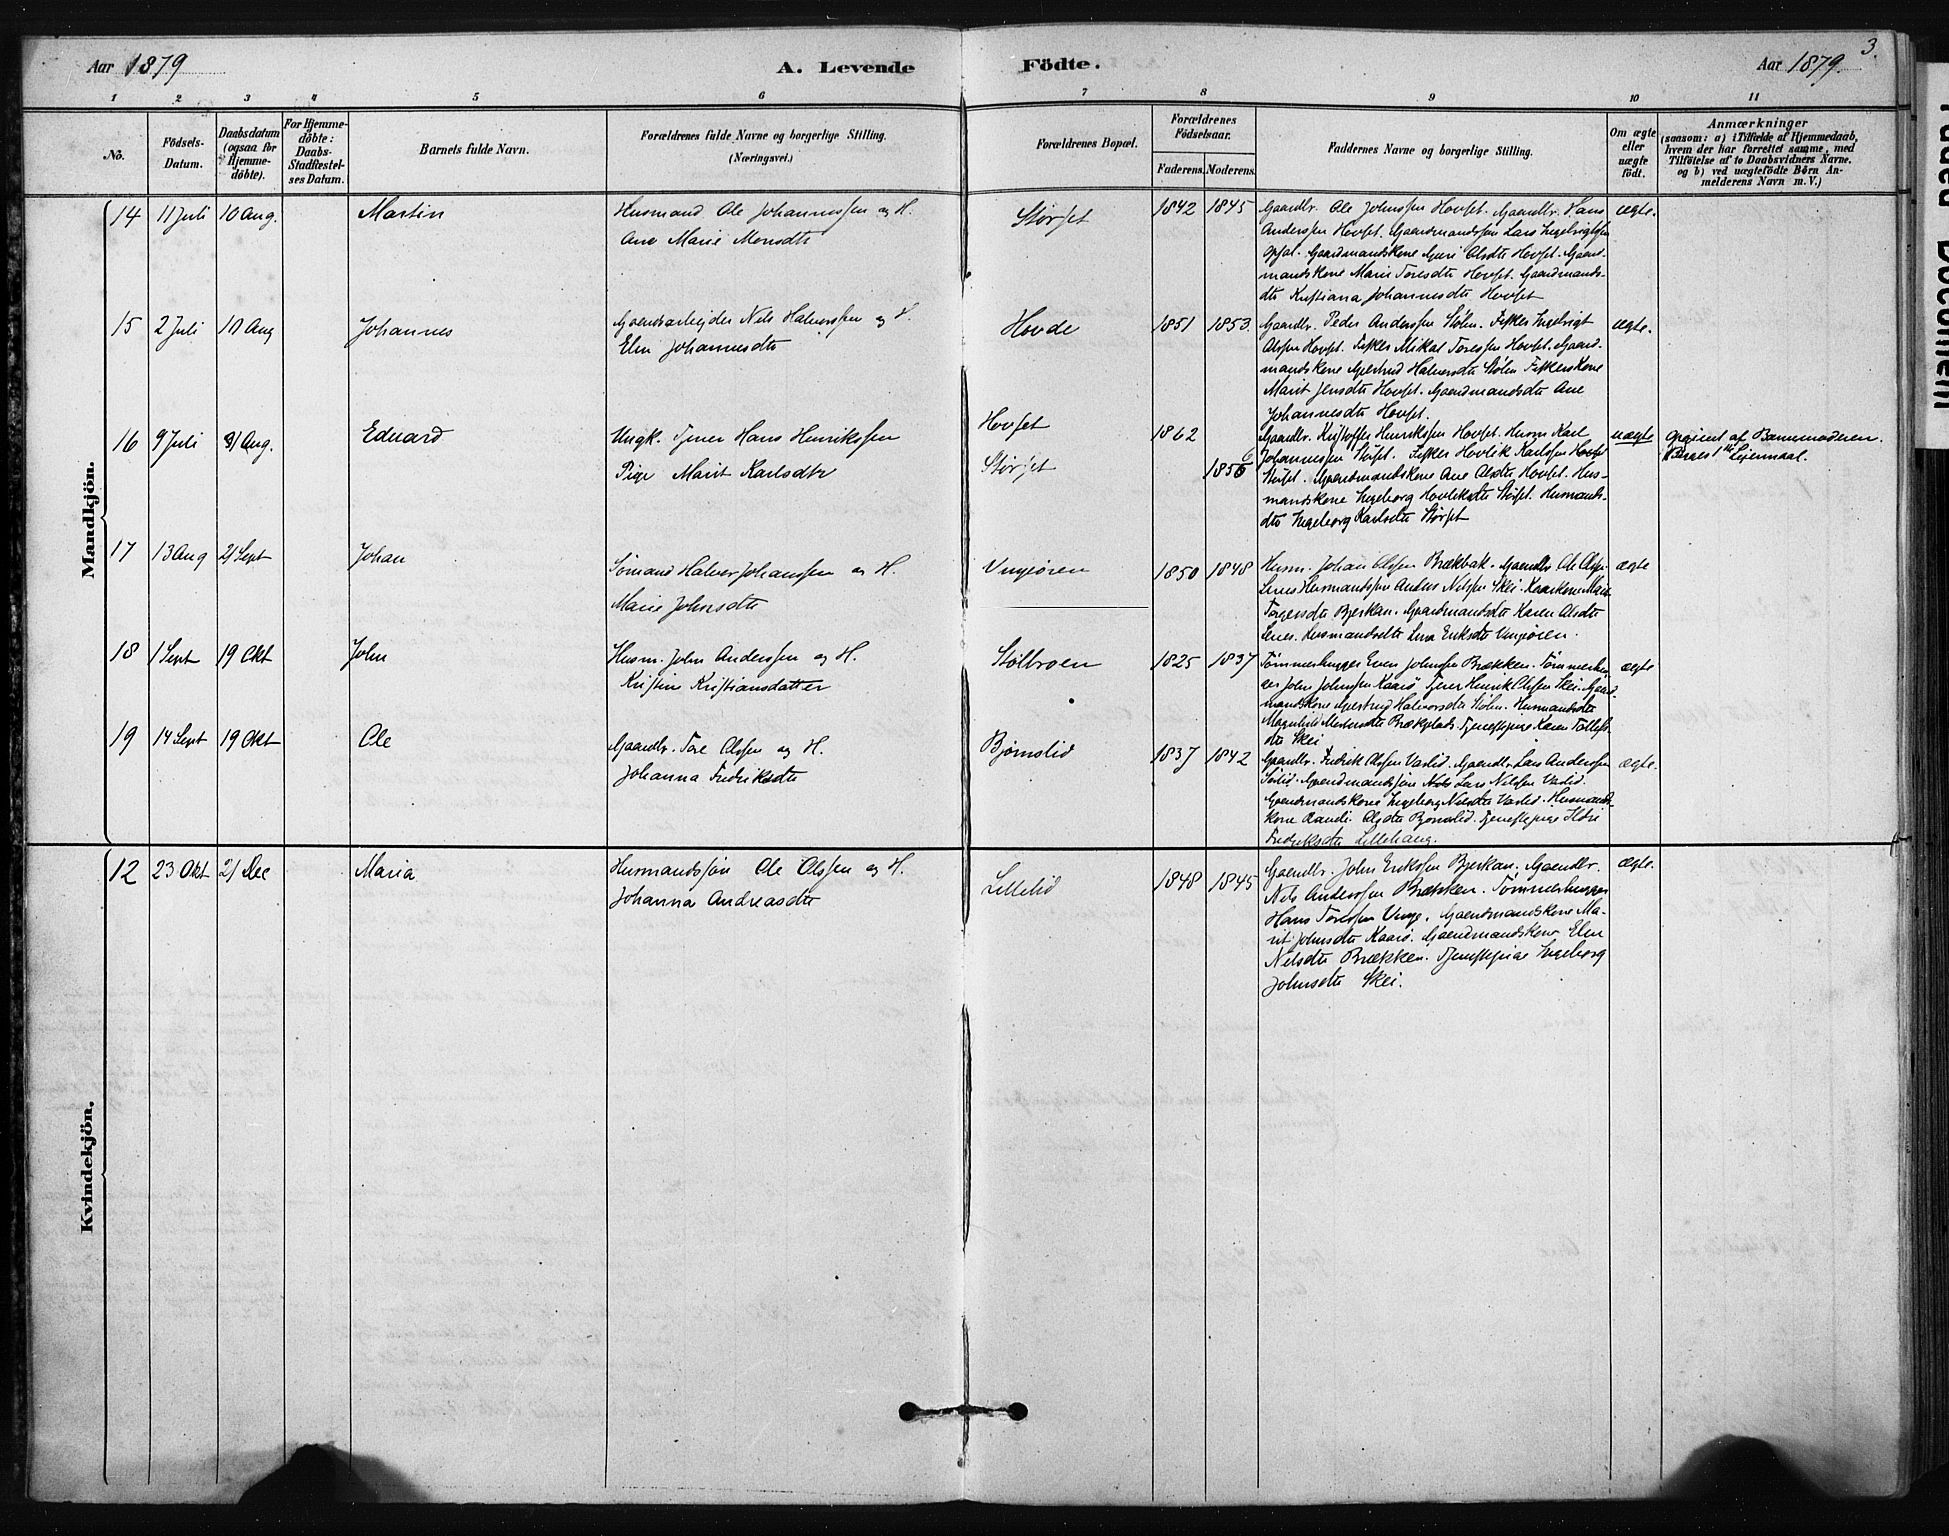 Aar 1879
A. Levende Födte.
Aar 1879.
3.
1 2 3 4 5 6 7 8 9 10 11
No.
Födsels-Datum.
Daabsdatum (ogsaa for Hjemmedöbte).
For Hjemmedöbte: Daabs-Stadfæstelses Datum.
Barnets fulde Navn.
Forældrenes fulde Navne og borgerlige Stilling.
(Næringsvei.)
Forældrenes Bopæl.
Forældrenes Födselsaar.
Faderens. Moderens.
Faddernes Navne og borgerlige Stilling.
Om ægte eller uægte födt.
Anmærkninger
(saasom: a) i Tilfælde af Hjemmedaab,
hvem der har forrettet samme, med
Tilföielse af to Daabsvidners Navne,
og b) ved uægtefödte Børn An-
melderens Navn m. V.)
Mandkjön.
14 11 Juli 10 Aug. Martin
Husmand Ole Johannessen og H.
Ane Marie Monsdtr
Størset 1842 1845
Gaardbr. Ole Johnssen Hovset. Gaardbr. Hans
Anderssen Hovset. Gaardmandssøn Lars Ingebrigtssen
Opsal. Gaardmandskone Guri Olsdtr Hovset. Gaard-
mandskone Marie Toresdtr Hovset. Gaardmands-
dtr Kristiana Johannesdtr Hovset
ægte.
15 2 Juli 10 Aug Johannes
Gaardsarbejder Nils Halvorssen og H.
Elen Johannesdtr
Hovde 1851 1853.
Gaardbr. Peder Anderssen Stølen. Fisker Ingebrigt
Olssen Hovset. Fisker Mikal Toressen Hovset. Gaard-
mandskone Gjertrud Halvorsdtr Stølen Fiskerskone
Marit Jensdtr Hovset. Gaardmandsdtr Ane
Johannesdtr Hovset.
ægte.
16 9 Juli 31 Aug. Edvard
Ungk. Tjener Hans Henrikssen
Pige Marit Karlsdtr
Hovset
Størset
1862
1856
Gaardbr. Kristoffer Henrikssen Hovset. Husm Karl
Johannessen Størset. Fisker Hovlik Karlssen
Størset. Gaardmandskone Ane Olsdtr Hovset. Hus-
mandskone Ingeborg Hovliksdtr Størset. Husmands-
dtr Ingeborg Karlsdtr Størset
uægte
Opgivet af Barnemoderen.
Begges 1ste Leiermaal.
17 13 Aug 21 Sept Johan
Sömand Halvor Johanssen og H.
Marie Johnsdtr
Vingiören 1850 1848
Husm. Johan Olssen Brækbak. Gaardbr Ole Olssen
Lenes Husmandssøn Anders Nilssen Skei. Kaarkone Marit
Torgersdtr Bjerkan. Gaardmandsdtr Karen Olsdtr
Lenes. Husmandsdtr Lena Eriksdtr Vingiören.
ægte
18 1 Sept 19 Okt John
Husm. John Anderssen og H.
Kristine Kristiansdatter
Stølbroen 1825 1837
Tømmerhugger Even Johnssen Brækken. Tømmerhug-
ger John Johnssen Kaarö Tjener Henrik Olssen Skei. Gaard-
mandskone Gjertrud Halvorsdtr Stølen. Husmandsdtr
Brækplads. Tjenestepige Karen Tollefs-
dtr Skei
ægte
19 14 Sept 19 Okt Ole
Gaardbr. Tore Olssen og H.
Johanna Fredriksdtr
Bjørnslid 1837 1842
Gaardbr. Fredrik Olssen Vaslid. Gaardbr Lars Anderssen
Gaardmandssøn Lars Nilssen Vaslid.
Gaardmandskone Ingeborg Nilsdtr Vaslid. Husmands-
kone Randi Olsdtr Bjørnslid. Tjenestepige Ildri
Fredriksdtr Lillehaug.
ægte.
Kvindekjön.
12 23 Okt 21 Dec Maria
Husmandssøn Ole Olssen og H.
Johanna Andreasdtr
Lillelid 1848 1845
Gaardbr. John Erikssen Bjerkan. Gaardbr.
Nils Anderssen Brækken. Tømmerhugger
Hans Toressen Vinge. Gaardmandskone Ma-
rit Johnsdtr Kaarö. Gaardmandskone Elen
Nilsdtr Brækken. Tjenestepige Ingeborg
Johnsdtr Skei.
ægte.